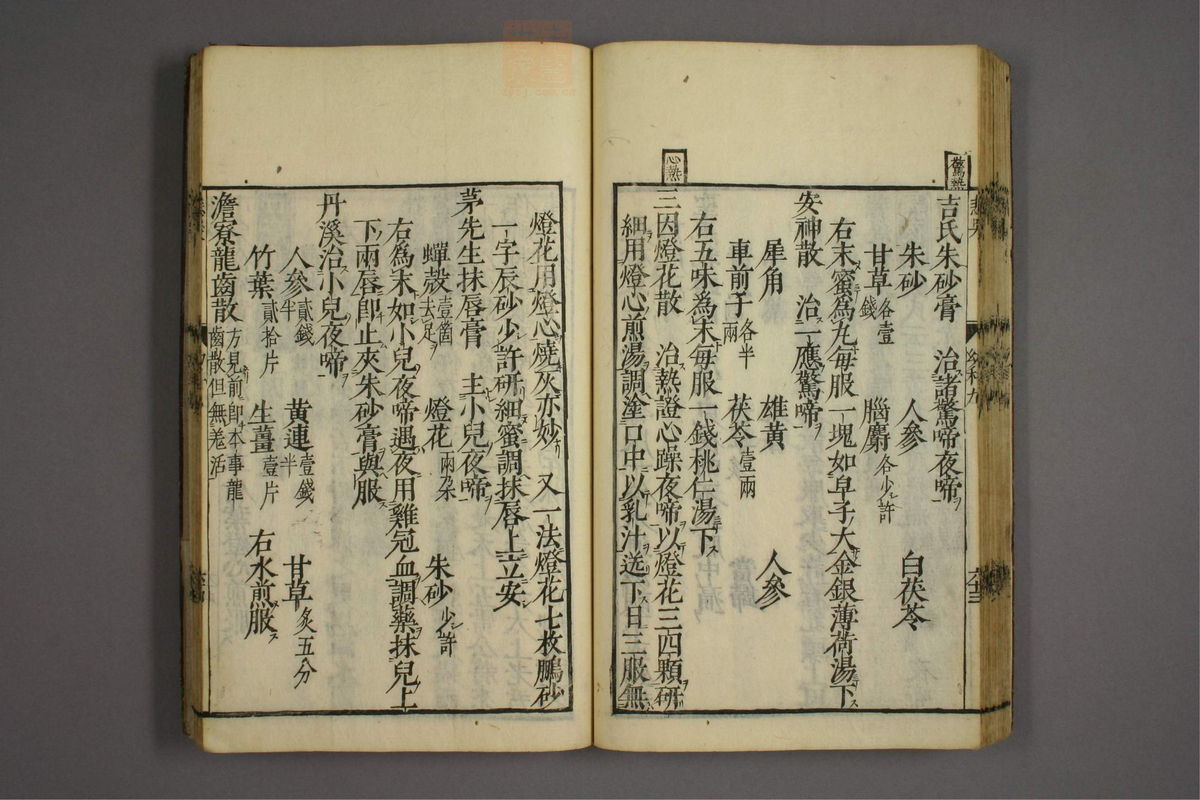 驚熱
吉氏朱砂膏　治諸驚啼夜啼
朱砂　人參　白茯苓
甘草各壹錢　腦麝各少許
右末蜜為丸每服一塊如皁子大金銀薄荷湯下
安神散　治一應驚啼
犀角　雄黃　人參
車前子各半兩　茯苓壹兩
右五味為末每服一錢桃仁湯下
心熱
三因燈花散　治熱證心躁夜啼以燈花三四顆研
細用燈心煎湯調塗口中以乳汁送下日三服無
燈花用燈心燒灰亦妙　又一法燈花七枚鵬砂
一字辰砂少許研細蜜調抹唇上立安
茅先生抹唇膏　主小兒夜啼
蟬殼壹箇去足　燈花兩朶　朱砂少許
右為末如小兒夜啼遇夜用雞冠血調藥抹兒上
下兩唇即止夾朱砂膏與服
丹溪治小兒夜啼
人參貳錢半　黃連壹錢半　甘草炙五分
竹葉貳拾片　生薑壹片　右水煎服
澹寮龍齒散方見前即本事龍齒散但無羗活